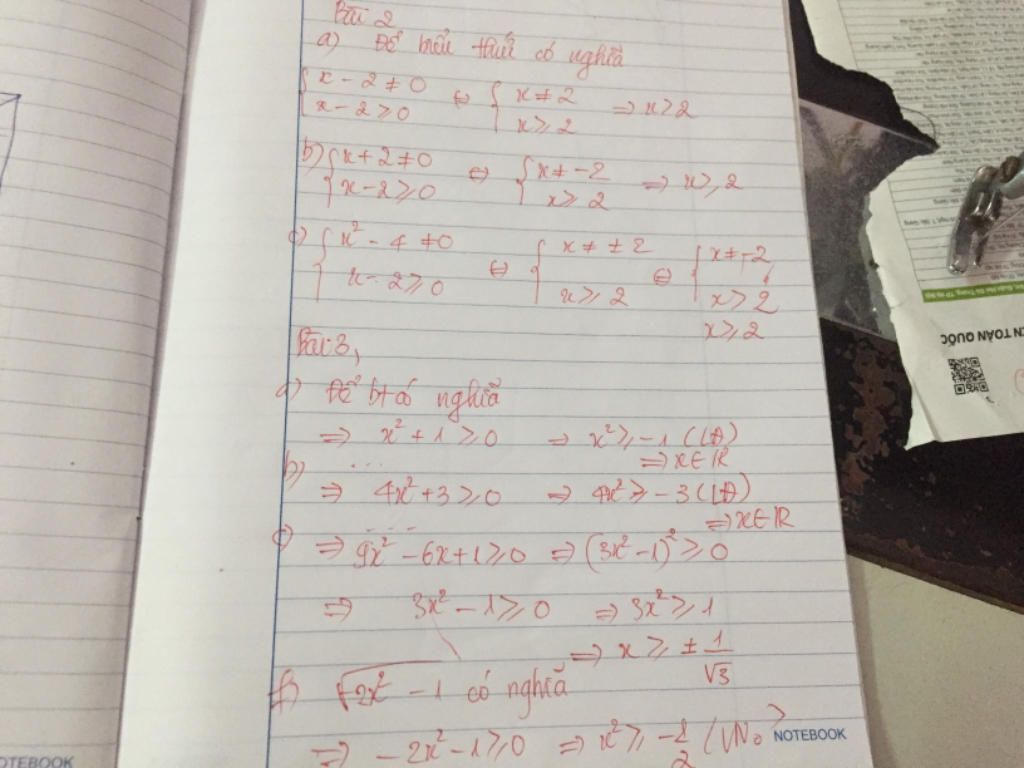 Bài 2
a) Để biểu thức có nghĩa
{ x - 2 ≠ 0 ⇔ { x ≠ 2 ⇒ x > 2
x - 2 ≥ 0 x ≥ 2
b) { x + 2 ≠ 0 ⇔ { x ≠ -2 ⇒ x ≥ 2
x - 2 ≥ 0 x ≥ 2
c) { x² - 4 ≠ 0 ⇔ { x ≠ ± 2 ⇔ { x ≠ -2
x - 2 ≥ 0 x ≥ 2 x > 2
x ≥ 2
Bài 3,
a) Để bt có nghĩa
⇒ x² + 1 ≥ 0 ⇒ x² ≥ -1 (LĐ)
⇒ x ∈ R
b) ...
⇒ 4x² + 3 ≥ 0 ⇒ 4x² ≥ -3 (LĐ)
⇒ x ∈ R
c) ....
⇒ 9x² - 6x + 1 ≥ 0 ⇒ (3x² - 1)² ≥ 0
⇒ 3x² - 1 ≥ 0 ⇒ 3x² ≥ 1
⇒ x ≥ ± 1/√3
f) √2x² - 1 có nghĩa
⇒ -2x² - 1 ≥ 0 ⇒ x² ≥ -1/2 (VNo
NOTEBOOK
OTEBOOK
ÊN TOÀN QUỐC